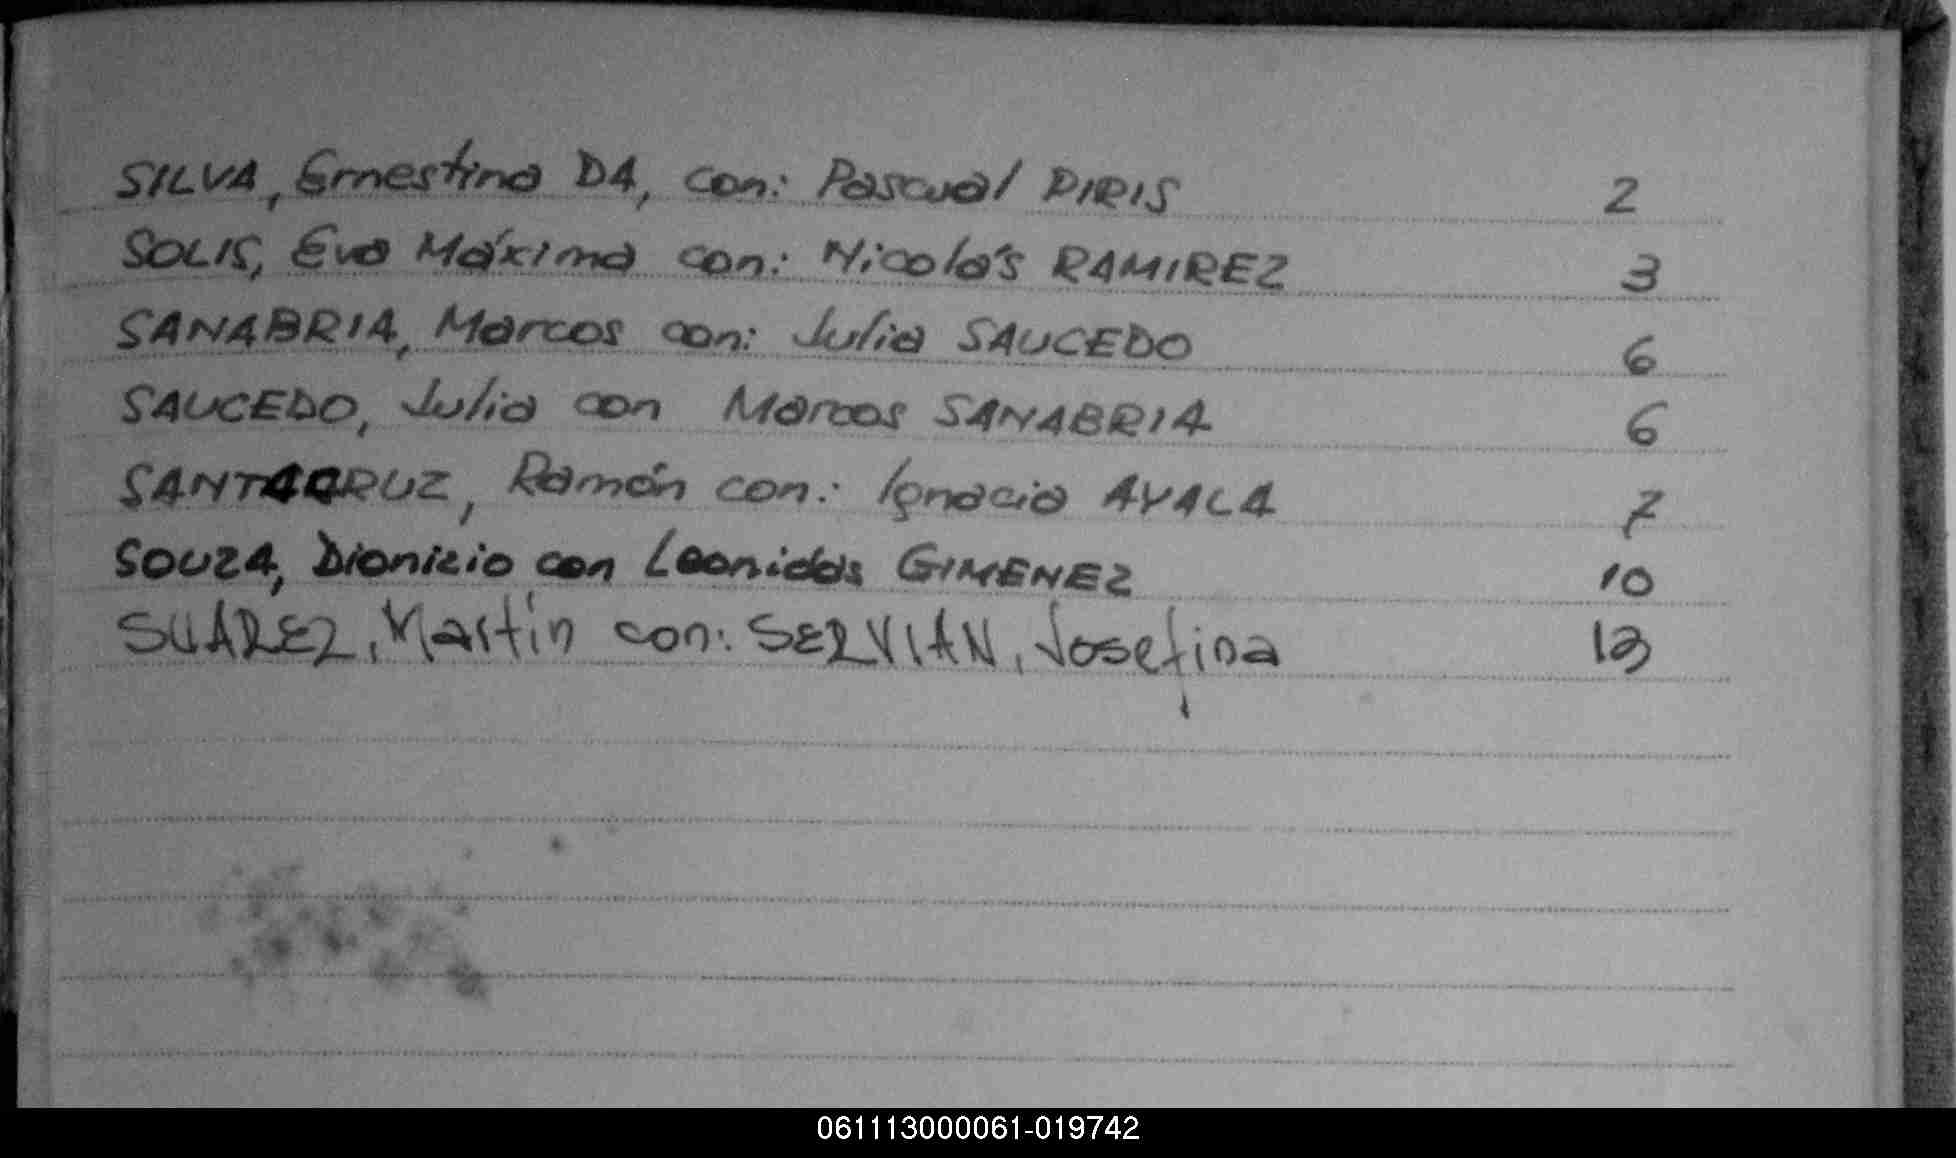 SILVA, Ernestina DA, con: Pascual PIRIS 2
SOLIS, Eva Máxima con: Nicolás RAMIREZ 3
SANABRIA, Marcos con: Julia SAUCEDO 6
SAUCEDO, Julia con Marcos SANABRIA 6
SANTACRUZ, Ramón con: Ignacia AYALA 7
SOUZA, Dionizio con Leonidas GIMENEZ 10
SUAREZ, Martín con: SERVIAN, Josefina 13
061113000061-019742